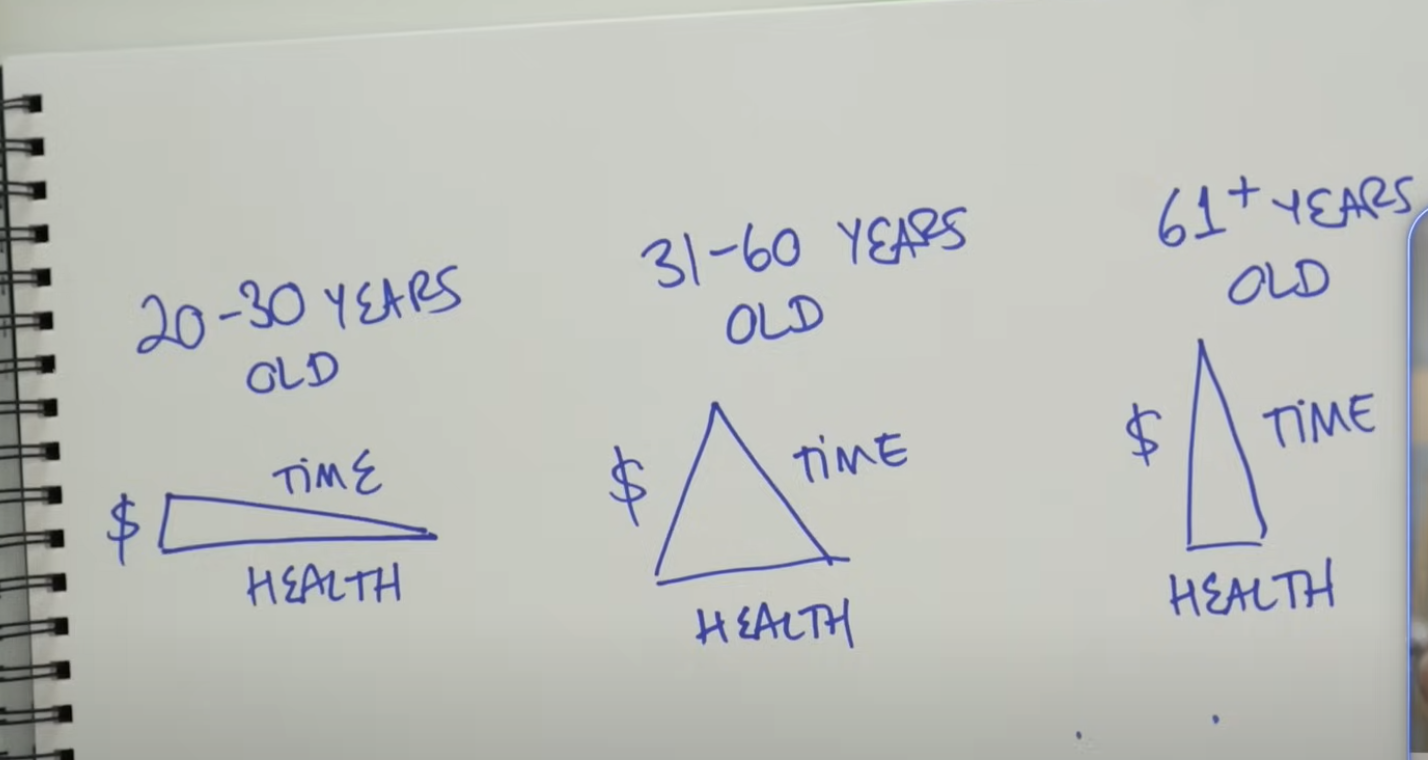 20-30 YEARS
OLD
$
TIME
HEALTH
31-60 YEARS
OLD
$
TIME
HEALTH
61+ YEARS
OLD
$
TIME
HEALTH